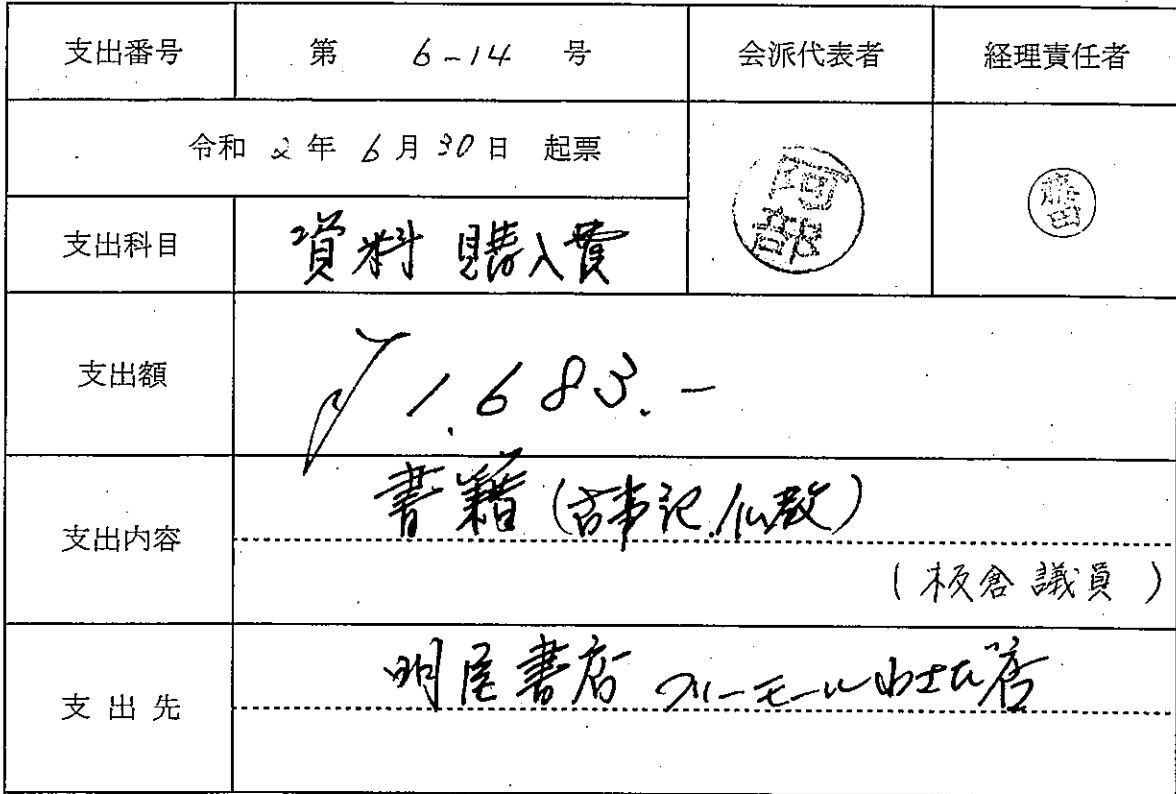 支出番号 第 6-14 号 会派代表者 経理責任者
令和 2 年 6 月 30 日 起票
阿部
藤田
支出科目 資料購入費
支出額 ¥1,683.-
支出内容 書籍(古事記.仏教)
(板倉議員)
支出先 明屋書店 フリーモールわさだ店